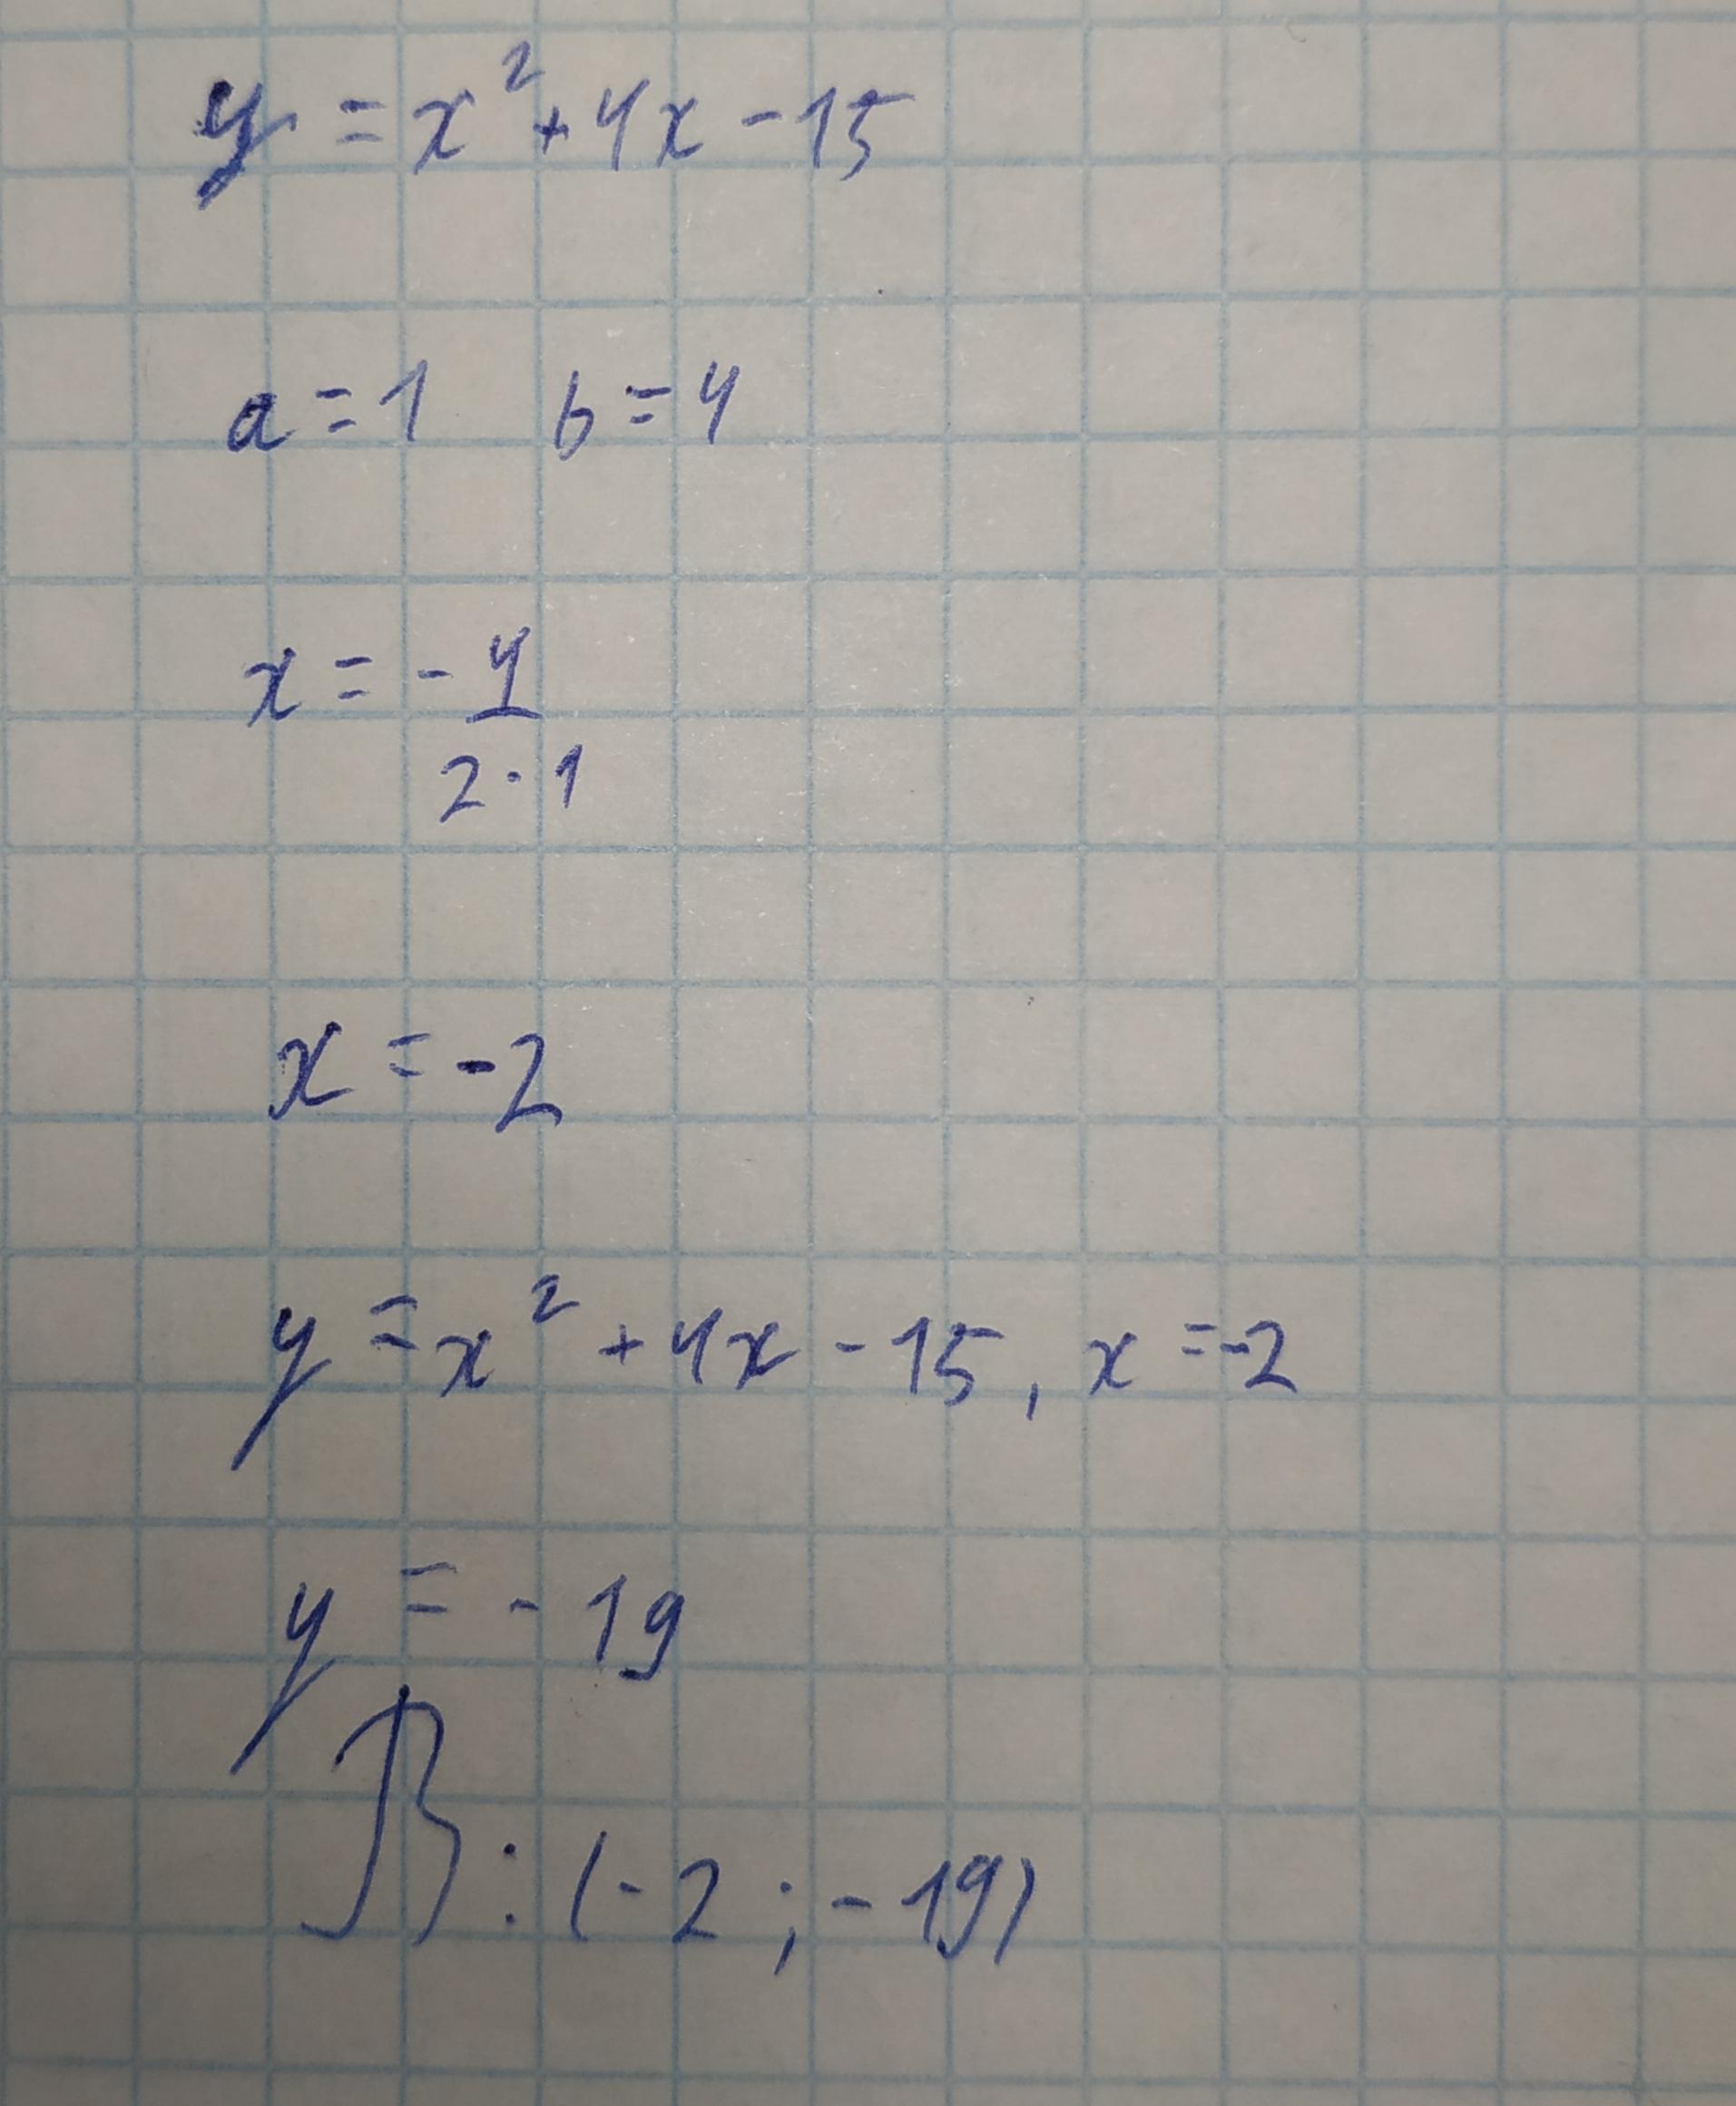 y = x² + 4x - 15
a = 1 b = 4
x = - 4
2 · 1
x = -2
y = x² + 4x - 15, x = -2
y = - 19
: (-2 ; -19)